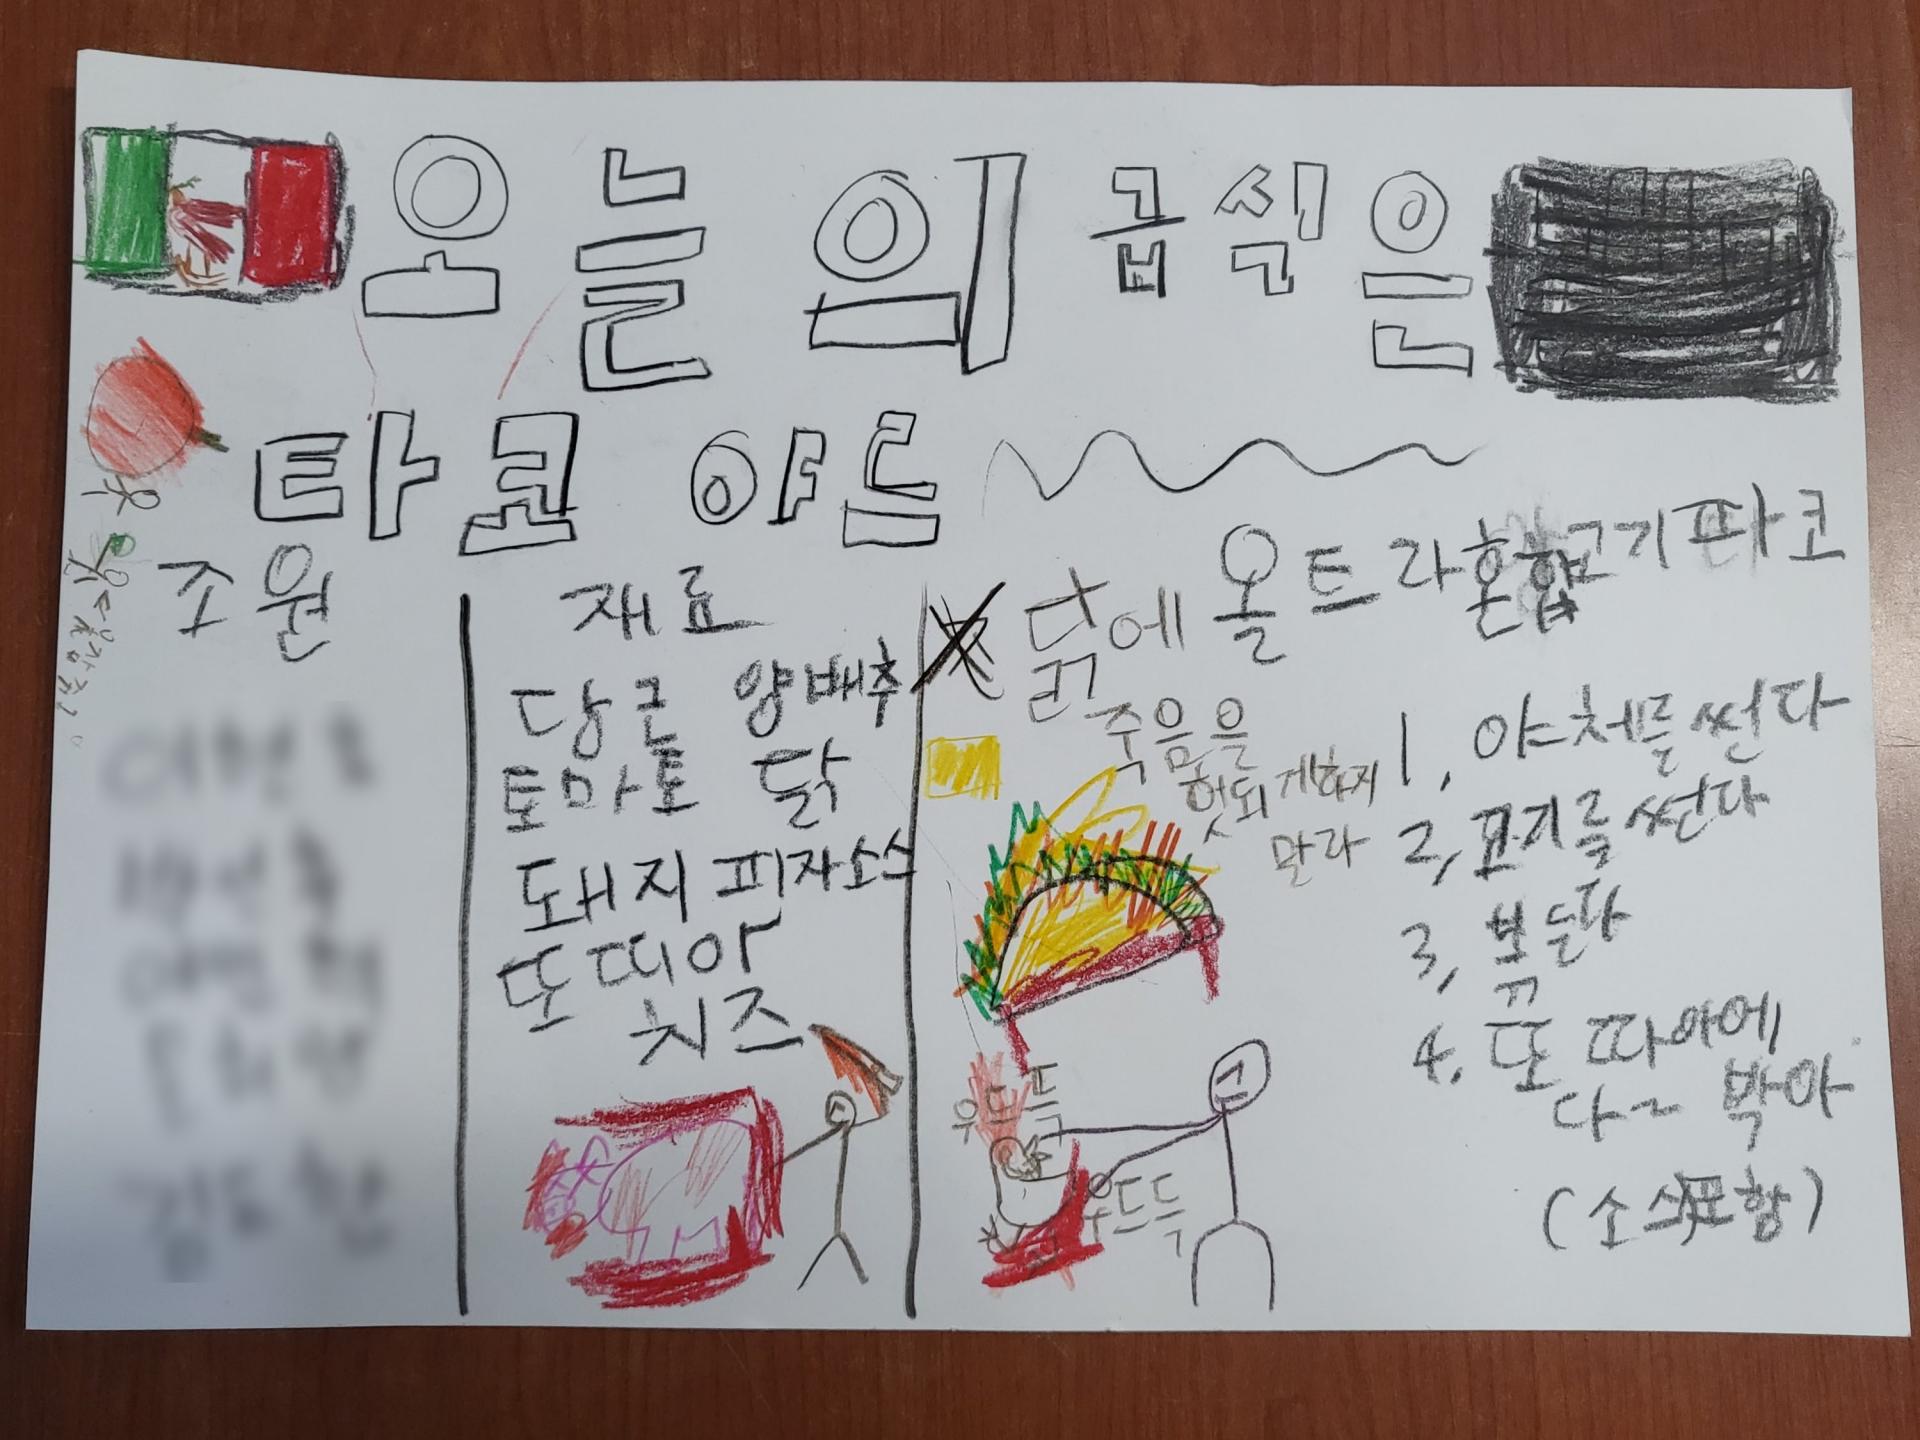 오늘의 급식은
타코 야드
조원
재료
당근 양배추
토마토 닭
돼지 피자소스
또띠아
치즈
닭에
주음을
헛되게하지
말라
우드득
우드득
올트라혼합고기타코
1, 야채를 썬다
2, 꼬기를 썬다
3, 볶는다
4, 또띠아에
다~ 박아
(소스포함)